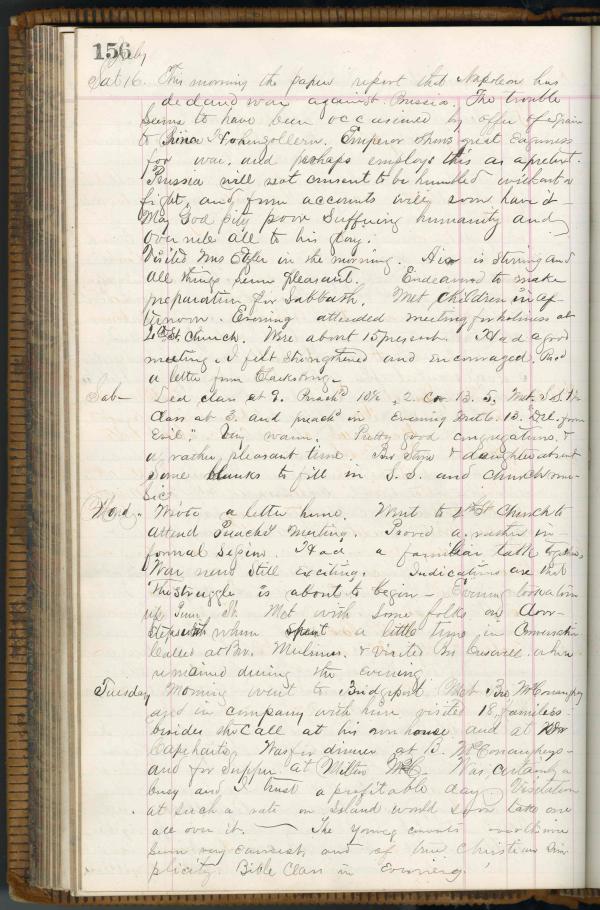 156 July
Sat 16. This morning the papers report that Napoleon has
declared war against Prussia. The trouble
seems to have been occasioned by offer of Spain
to Prince Hohenzollern. Emperor shows great eagerness
for war, and perhaps employs this as a pretext.
Prussia will not consent to be humbled without a
fight, and from accounts will soon have it -
May God pity poor suffering humanity and
overrule all to his glory.
Visited Mrs in the morning. Air is stirring and
all things seem pleasant. Endeavored to make
preparation for Sabbath. Met children in af-
ternoon. Evening attended meeting for holiness at
St. Church. Were about 15 present. Had a good
meeting. I felt strengthened and encouraged. Rec'd
a letter from
Sab - Led class at 9. Preach'd 10½, 2. Cor. 13. 5. Met S.S.
Class at 3. and preach'd in evening Matt 6. 13. "Del. from
Evil." Very warm. Pretty good congregations, &
a rather pleasant time. Bro & daughter absent
Some blanks to fill in S.S. and church mu-
sic.
Mond. Wrote a letter home. Went to St Church to
attend Preach's Meeting. Proved a rather in-
formal session. Had a familiar talk together,
War news still exciting. Indications are that
the struggle is about to begin - Evening took a turn
up St. Met with some folks on door-
steps with whom spent a little time in conversation
Called at Bro. & visited Bro where
remained during the evening
Tuesday Morning went to Bridgeport Met Bro McConaughey
and in company with him visited 18 families
besides the call at his own house and at Bro
Capeharts. Was for dinner at B. McConaugheys -
and for supper at Milton McC. Was certainly a
busy and I trust a profitable day. Visitation
at such a rate on Island would soon take one
all over it. — The young converts over there
seem very earnest, and of true Christian sim-
plicity. Bible Class in Evening.